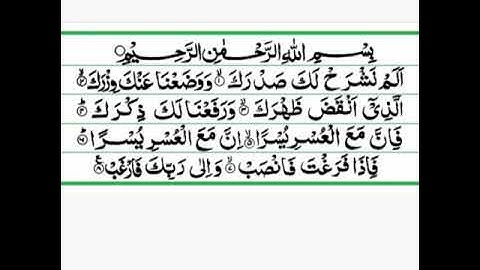 بِسْمِ اللهِ الرَّحْمٰنِ الرَّحِيْمِ
اَلَمْ نَشْرَحْ لَكَ صَدْرَكَ ۙ‏﴿۱﴾ وَوَضَعْنَا عَنْكَ وِزْرَكَ ۙ‏﴿۲﴾
الَّذِيْٓ اَنْقَضَ ظَهْرَكَ ۙ‏﴿۳﴾ وَرَفَعْنَا لَكَ ذِكْرَكَ ؕ‏﴿۴﴾
فَاِنَّ مَعَ الْعُسْرِ يُسْرًا ۙ‏﴿۵﴾ اِنَّ مَعَ الْعُسْرِ يُسْرًا ؕ‏﴿۶﴾
فَاِذَا فَرَغْتَ فَانْصَبْ ۙ‏﴿۷﴾ وَاِلٰى رَبِّكَ فَارْغَبْ ‏﴿۸﴾